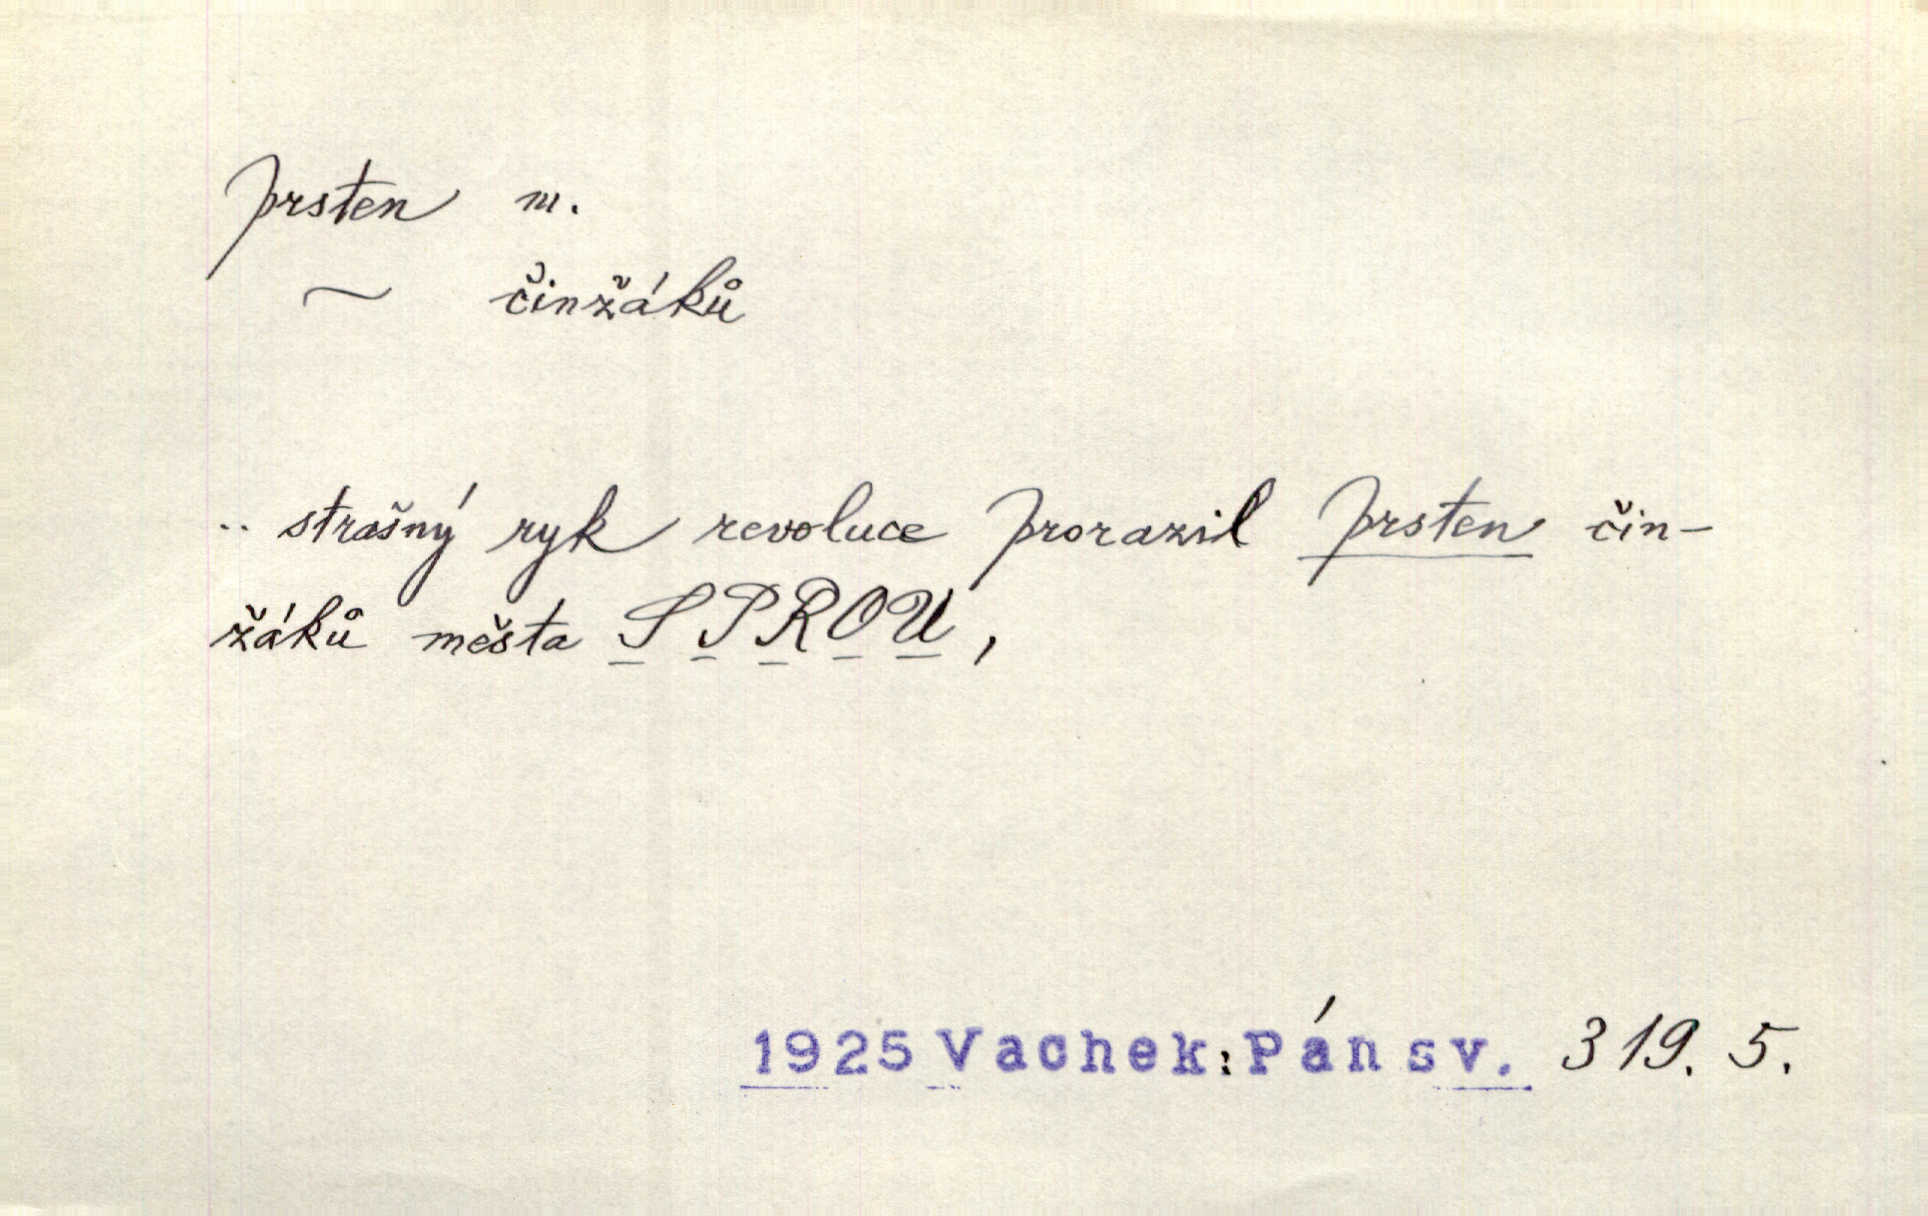 prsten m.
~ činžáků
.. strašný ryk revoluce prorazil prsten čin-
žáků města SPROU,
1925 Vachek: Pán sv. 319. 5.